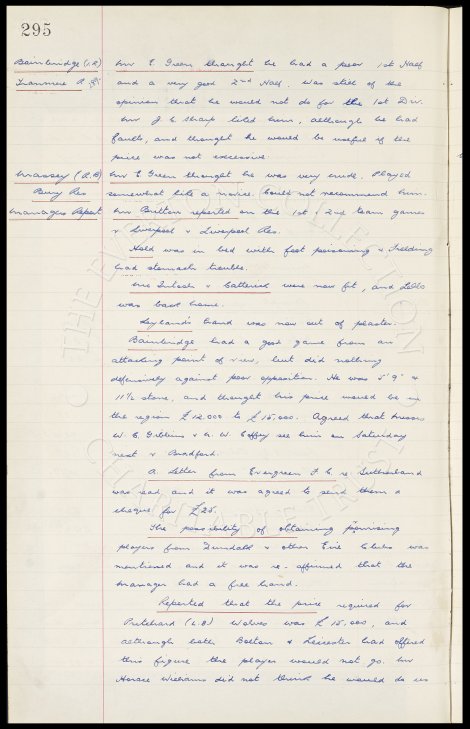 295
Bainbridge (I.R) Mr E Green thought he had a poor 1st Half
Tranmere R. and a very good 2nd Half. Was still of the
opinion that he would not do for the 1st Div.
Mr J C Sharp liked him, although he had
faults, and thought he would be useful if the
price was not excessive.
Massey (R.B) Mr E Green thought he was very crude. Played
Bury Res somewhat like a novice. Could not recommend him.
Managers Report Mr Britton reported on the 1st & 2nd team games
v Liverpool & Liverpool Res.
Hold was in bed with food poisoning & Fielding
had stomach trouble.
McIntosh & Catterick were now fit, and Lello
was back home.
Leyland's hand was now out of plaster.
Bainbridge had a good game from an
attacking point of view, but did nothing
defensively against poor opposition. He was 5' 9" &
11½ stone, and thought his price would be in
the region £12,000 to £15,000. Agreed that Messrs
W. C. Gibbins & W Coffey see him on Saturday
next v Bradford.
A letter from Evergreen F.C. re Sutherland
was read, and it was agreed to send them a
cheque for £25.
The possibility of obtaining promising
players from Dundalk & other Eire Clubs was
mentioned and it was re-affirmed that the
manager had a free hand.
Reported that the price required for
Pritchard (L.B) Wolves was £15,000, and
although both Bolton & Leicester had offered
this figure the player would not go. Mr
Horace Williams did not think he would do us
THE EVERTON COLLECTION
CHARITABLE TRUST